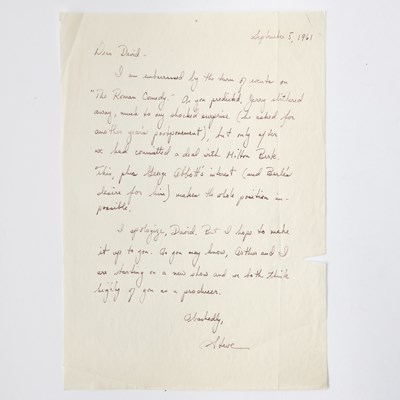 September 5, 1961
Dear David -
I am embarrassed by the turn of events on
"The Roman Comedy." As you predicted, Jerry slithered
away, much to my shocked surprise (he asked for
another year's postponement), but only after
we had committed a deal with Milton Berle.
This, plus George Abbott's interest (and Berle's
desire for him) makes the whole position im-
possible.
I apologize, David. But I hope to make
it up to you. As you may know, Arthur and I
are starting on a new show and we both think
highly of you as a producer.
Abashedly,
Steve